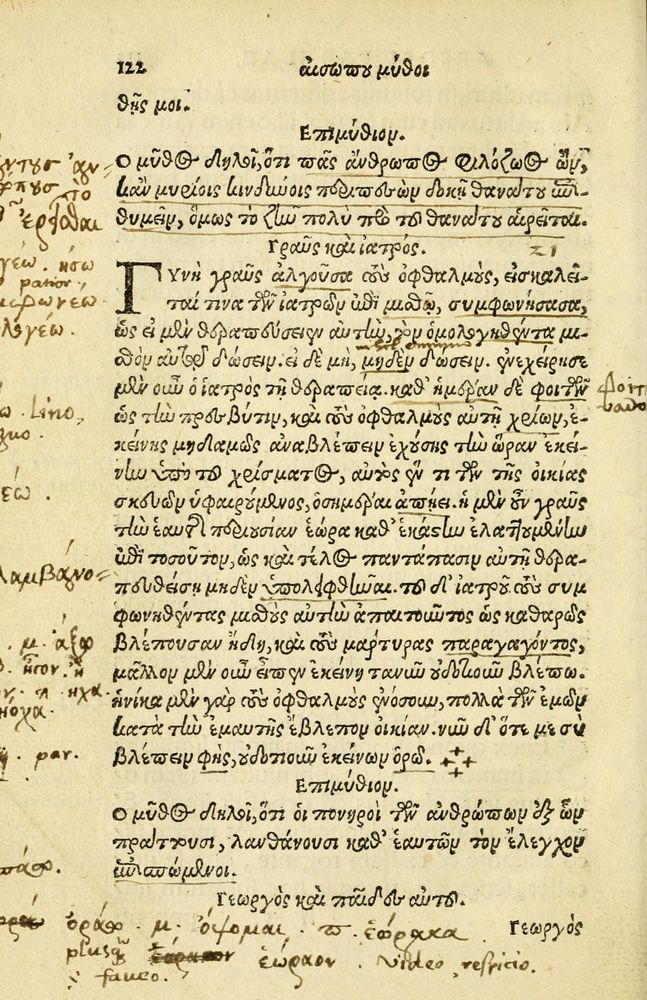 122 αισωπου μῦθοι
θῇς μοι.
Επιμύθιον.
Ο μῦθος δηλοῖ, ὅτι πᾶς ἄνθρωπος φιλόζωος ὢν,
κἂν μυρίοις κινδύνοις περιπεσὼν δοκῇ θανάτου ἐπι-
θυμεῖν, ὅμως τὸ ζῆν πολὺ πρὸ τοῦ θανάτου αἱρεῖται.
Γραῦς καὶ ἰατρός.
ΓΥνὴ γραῦς ἀλγοῦσα τοὺς ὀφθαλμοὺς, εἰσκαλεῖ-
ταί τινα τῶν ἰατρῶν ἐπὶ μισθῷ, συμφωνήσασα,
ὡς εἰ μὲν θεραπεύσειεν αὐτὴν, τὸν ὁμολογηθέντα μι-
σθὸν αὐτῷ δώσειν. εἰ δὲ μὴ, μηδὲν δώσειν. ἐνεχείρησε
μὲν οὖν ὁ ἰατρὸς τῇ θεραπείᾳ. καθ' ἡμέραν δὲ φοιτῶν
ὡς τὴν πρεσβῦτιν, καὶ τοὺς ὀφθαλμοὺς αὐτῇ χρίων, ἐ-
κείνης μηδαμῶς ἀναβλέπειν ἐχούσης τὴν ὥραν ἐκεί-
νην ὑπὸ τοῦ χρίσματος, αὐτὸς ἕν τι τῶν τῆς οἰκίας
σκευῶν ὑφαιρούμενος, ὁσημέραι ἀπῄει. ἡ μὲν οὖν γραῦς
τὴν ἑαυτῆς περιουσίαν ἑώρα καθ' ἑκάστην ἐλαττουμένην
ἐπὶ τοσοῦτον, ὡς καὶ τέλος παντάπασιν αὐτῇ θερα-
πευθείσῃ μηδὲν ὑπολειφθῆναι. τοῦ δ' ἰατροῦ τοὺς συμ
φωνηθέντας μισθοὺς αὐτὴν ἀπαιτοῦντος ὡς καθαρῶς
βλέπουσαν ἤδη, καὶ τοὺς μάρτυρας παραγαγόντος,
μᾶλλον μὲν οὖν εἶπεν ἐκείνη τανῦν οὐδοτιοῦν βλέπω.
ἡνίκα μὲν γὰρ τοὺς ὀφθαλμοὺς ἐνόσουν, πολλὰ τῶν ἐμῶν
κατὰ τὴν ἐμαυτῆς ἔβλεπον οἰκίαν. νῦν δ' ὅτε με σὺ
βλέπειν φῂς, οὐδοτιοῦν ἐκείνων ὁρῶ.
Επιμύθιον.
Ο μῦθος δηλοῖ, ὅτι οἱ πονηροὶ τῶν ἀνθρώπων ἐξ ὧν
πράττουσι, λανθάνουσι καθ' ἑαυτῶν τὸν ἔλεγχον
ἐπισπώμενοι.
Γεωργὸς καὶ παῖδες αὐτοῦ.
Γεωργὸς
ὁράω · μ. ὄψομαι · π. ἑώρακα
ἑώραον. video, refricio.
faueo.
γέω. ήσω
patior.
. Lino,
λαμβάνο=
. par.